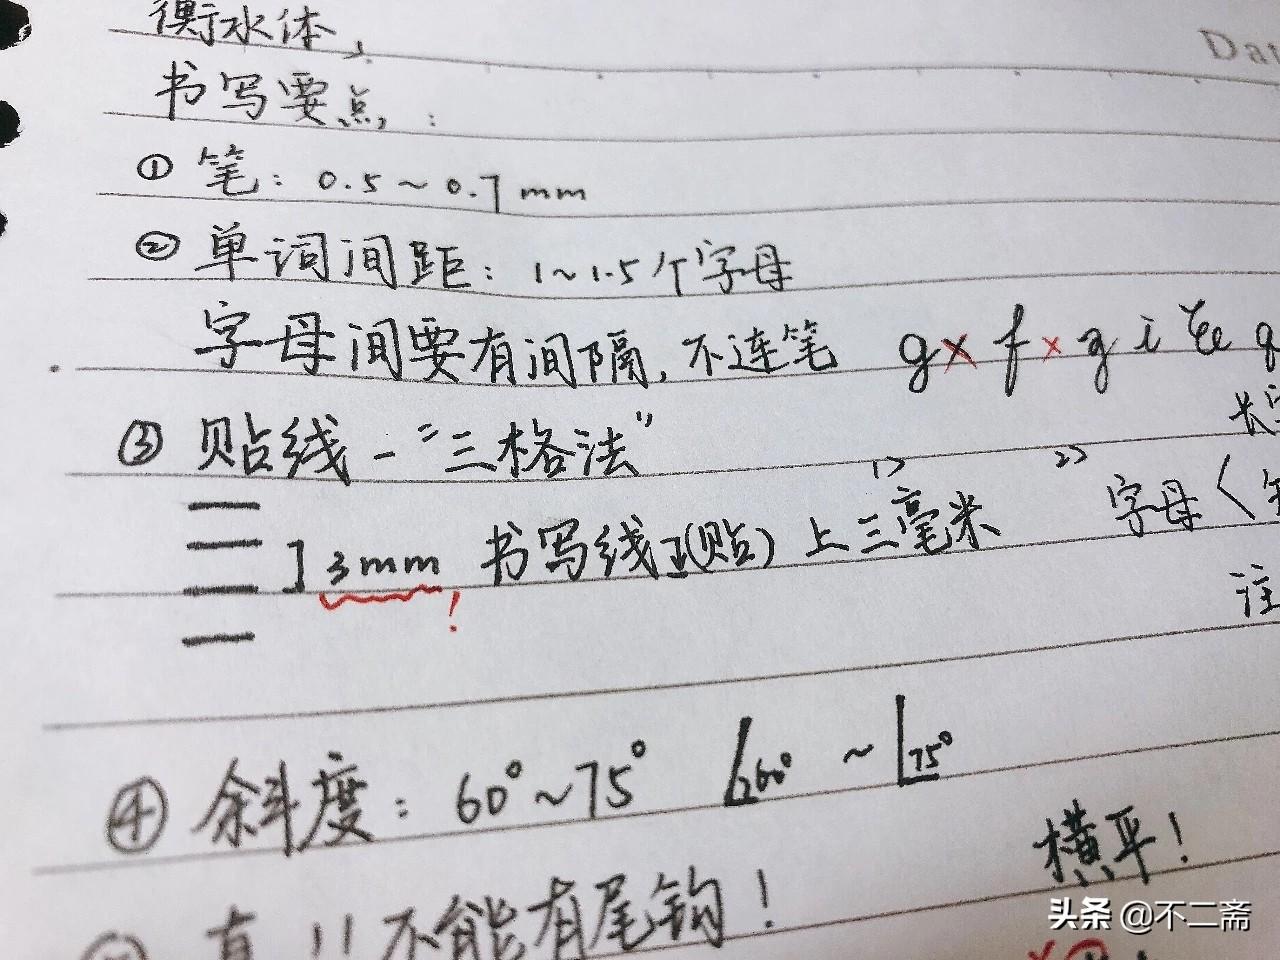 衡水体,
Dat
书写要点,:
① 笔: 0.5~0.7mm
② 单词间距: 1~1.5个字母
字母间要有间隔,不连笔 g× f× g i q
③ 贴线-“三格法”
1> 2>
]3mm! 书写线(贴)上三毫米 字母<
注
④ 斜度: 60°~75° 60°~75°
横平!
直 !! 不能有尾钩!
头条 @不二斋